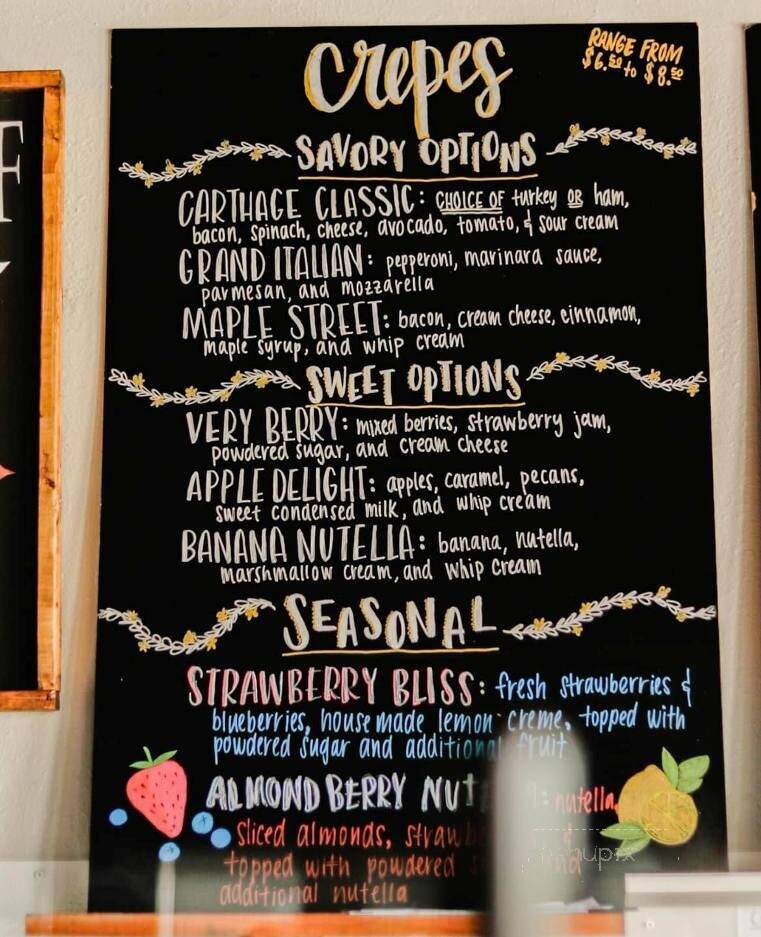 crepes
RANGE FROM
$6.50 to $8.50
SAVORY OPTIONS
CARTHAGE CLASSIC: CHOICE OF turkey OR ham,
bacon, spinach, cheese, avocado, tomato, & sour cream
GRAND ITALIAN: pepperoni, marinara sauce,
parmesan, and mozzarella
MAPLE STREET: bacon, cream cheese, cinnamon,
maple syrup, and whip cream
SWEET OPTIONS
VERY BERRY: mixed berries, strawberry jam,
powdered sugar, and cream cheese
APPLE DELIGHT: apples, caramel, pecans,
sweet condensed milk, and whip cream
BANANA NUTELLA: banana, nutella,
marshmallow cream, and whip cream
SEASONAL
STRAWBERRY BLISS: fresh strawberries &
blueberries, house made lemon creme, topped with
powdered sugar and additional fruit
ALMOND BERRY nutella,
sliced almonds,
topped with powdered
additional nutella
F